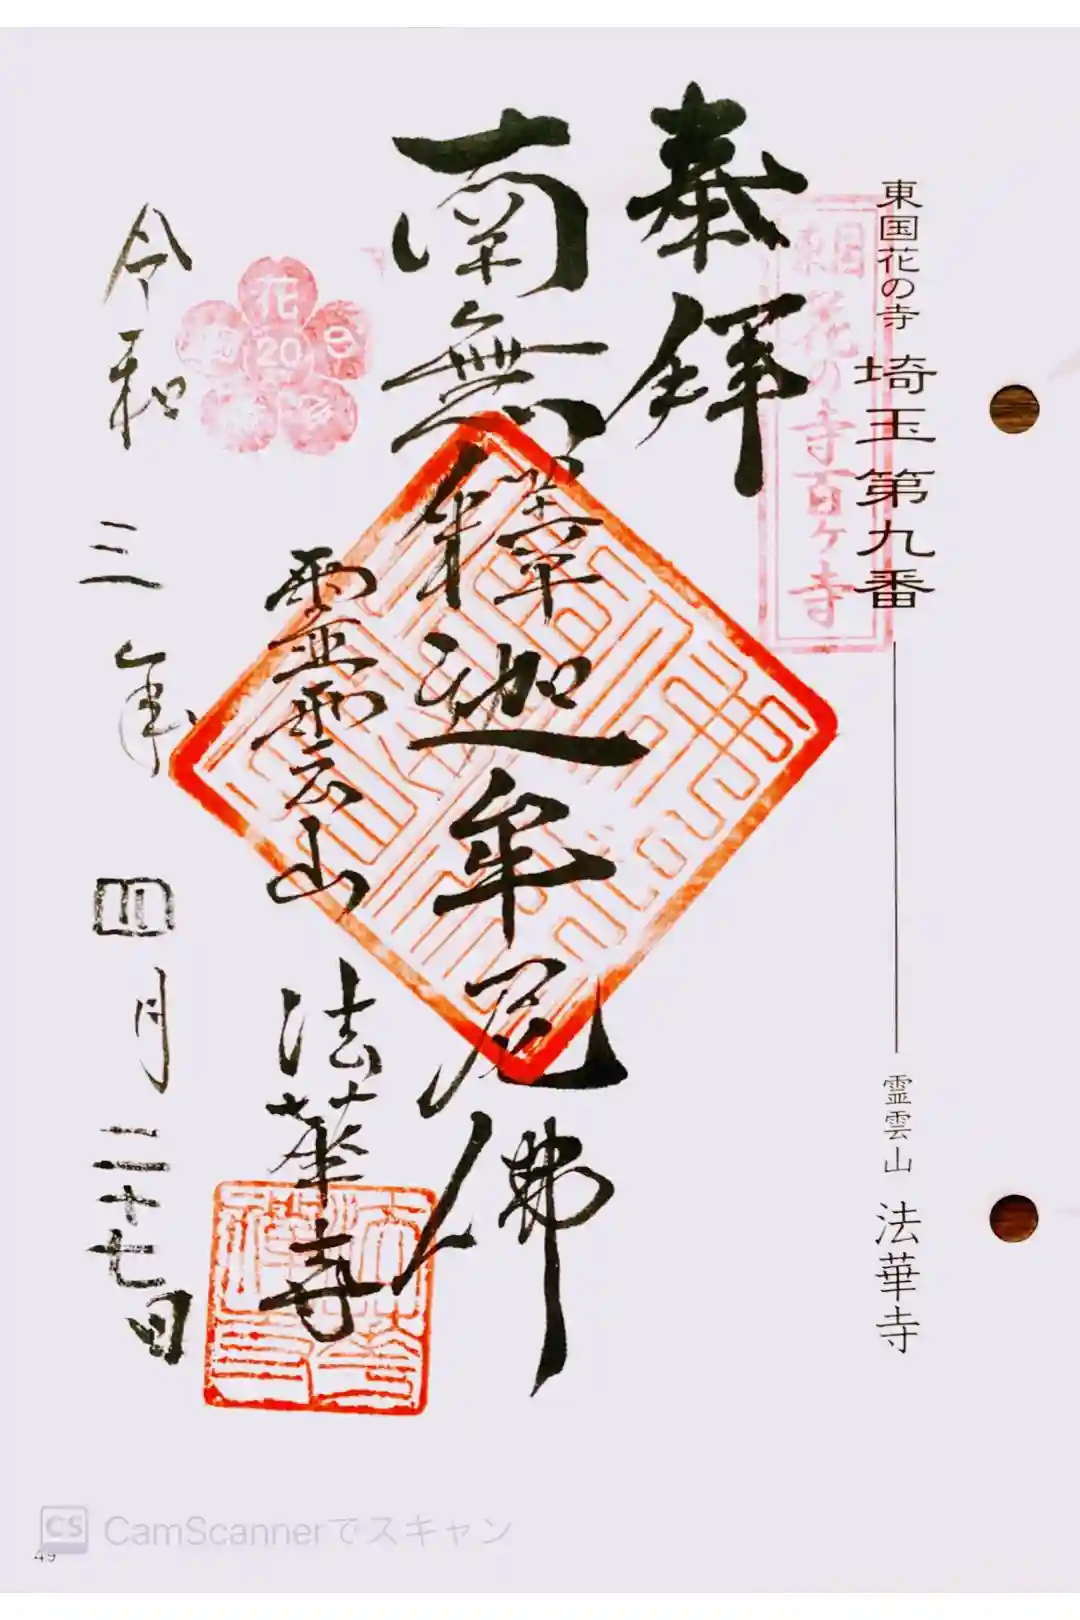 東国花の寺 埼玉第九番 霊雲山 法華寺
東国
花の寺百ヶ寺
奉拝
南無釋迦牟尼佛
霊雲山 法華寺
花
20
令和三年四月二十七日
CS CamScannerでスキャン
49